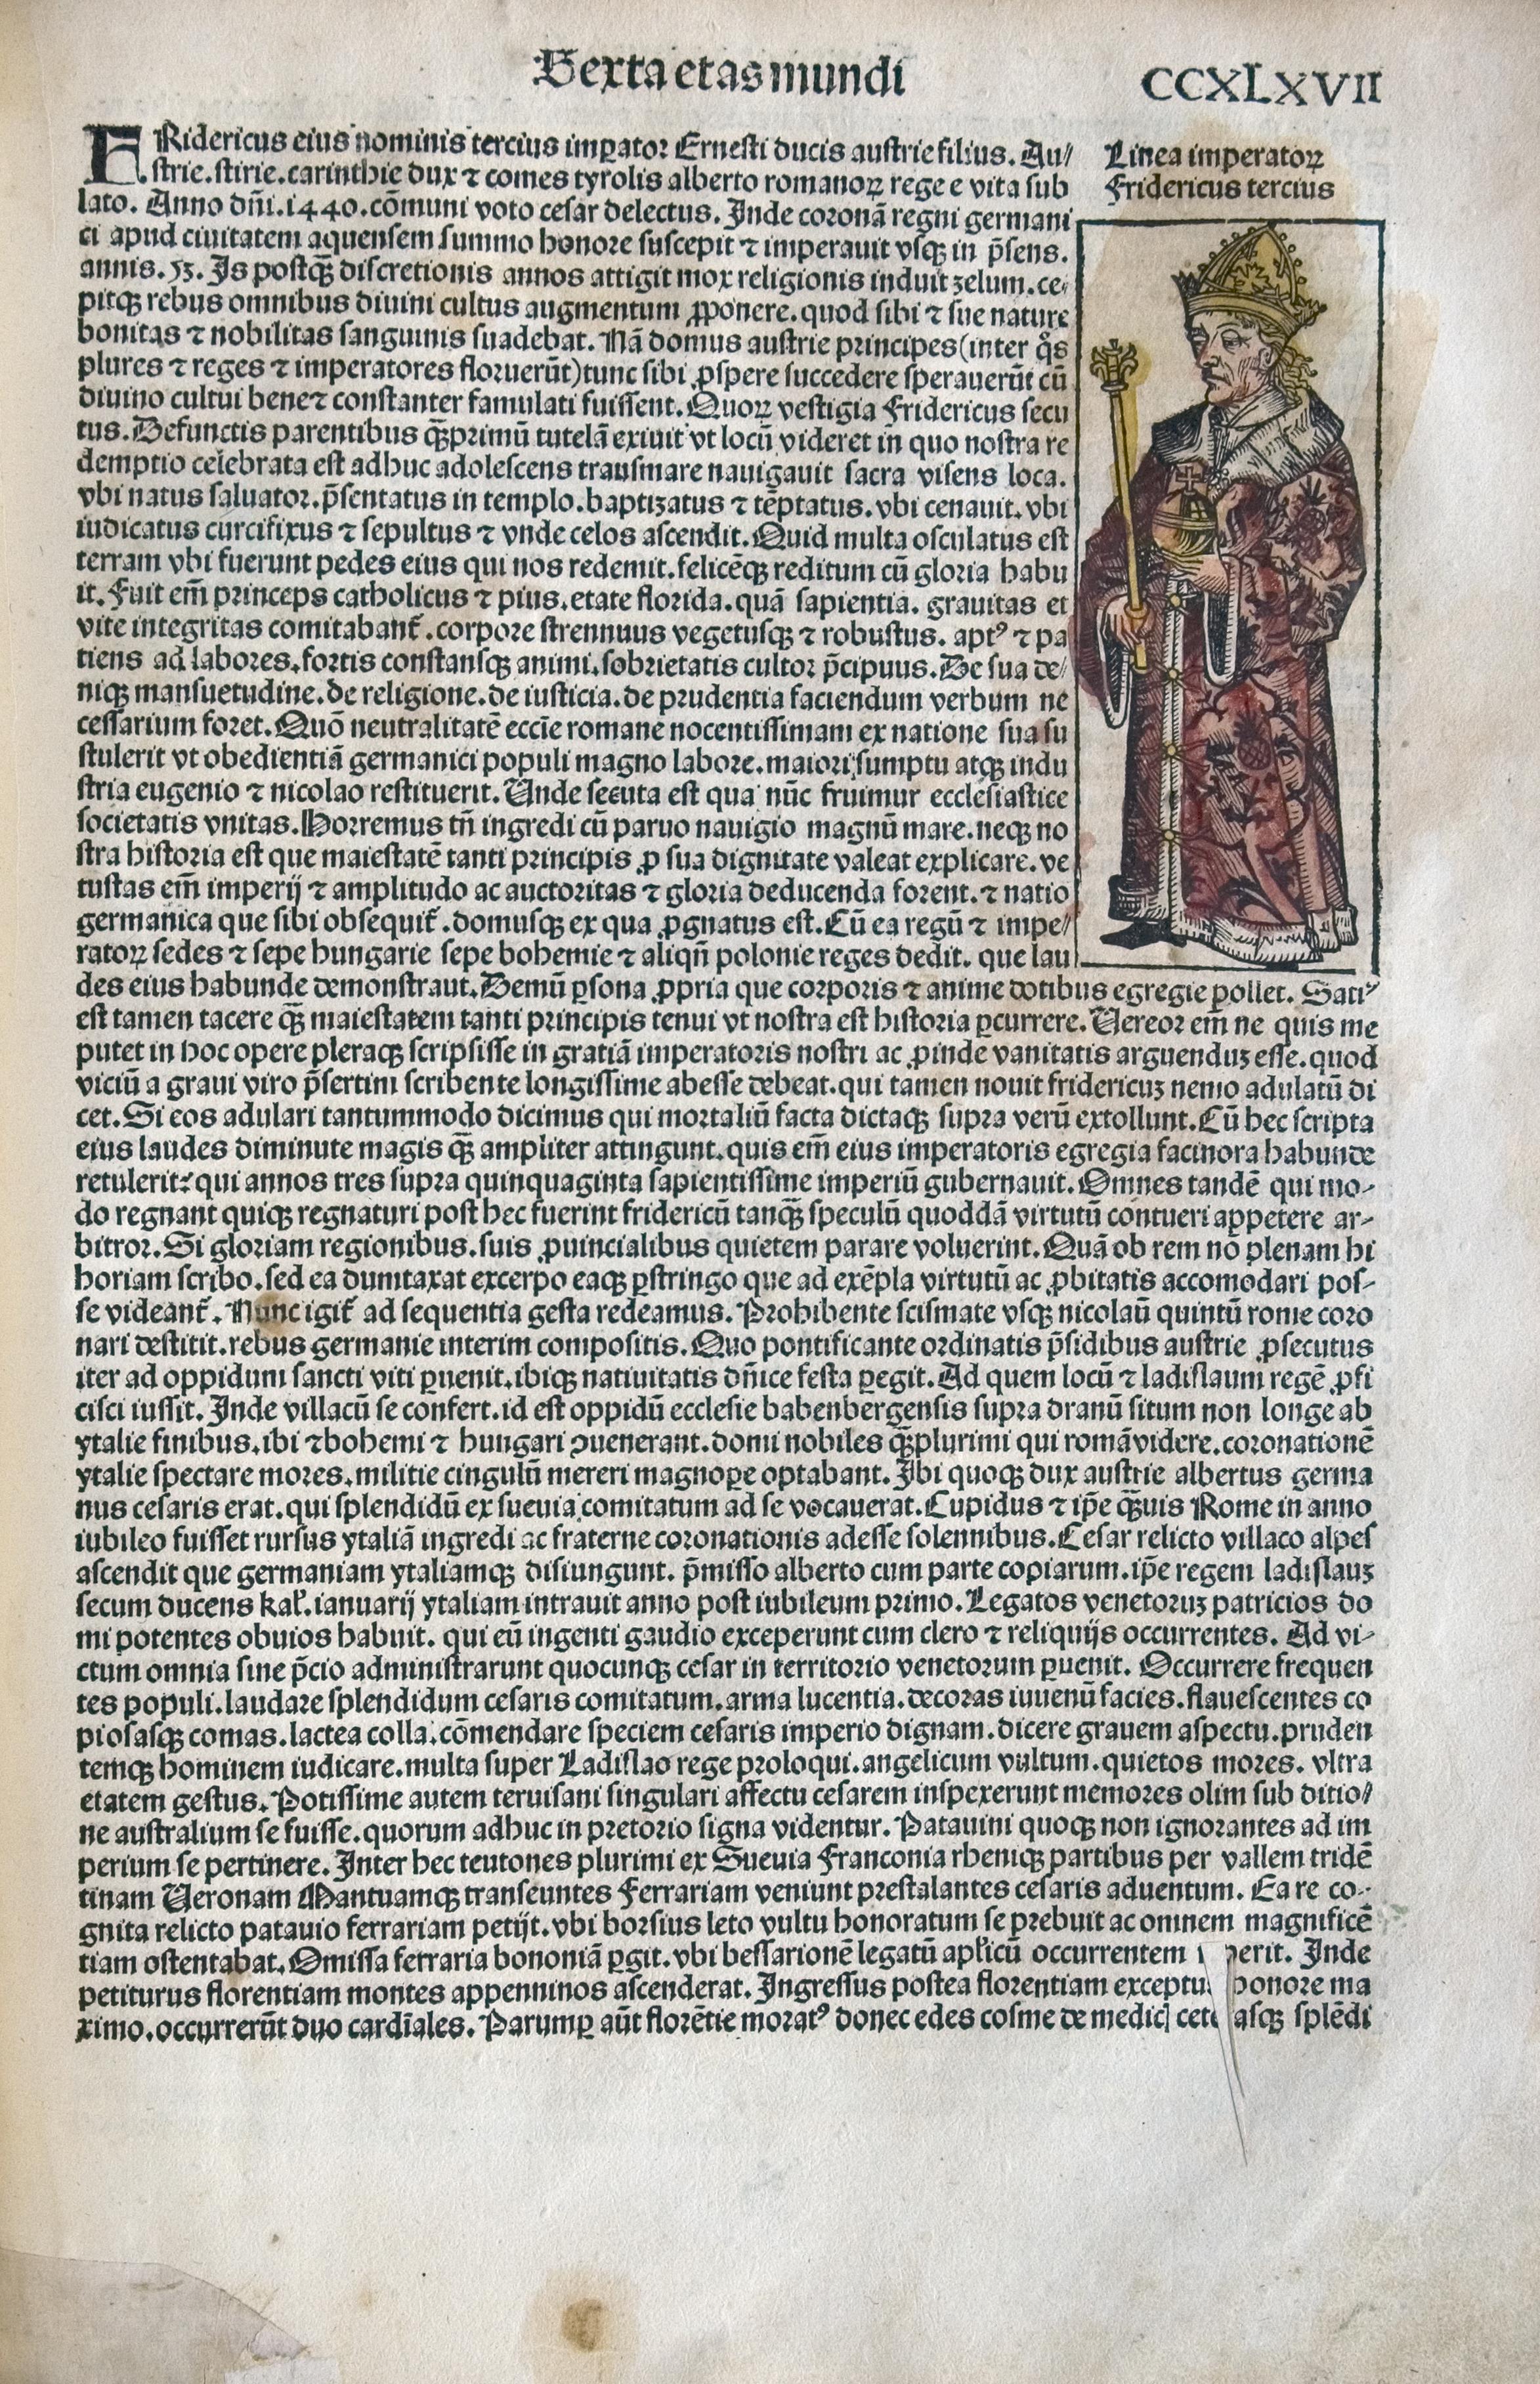 Sexta etas mundi
CCXLXVII
FRidericus eius nominis tercius imꝑator Ernesti ducis austrie filius. Au⸗
strie.stirie.carinthie dux ⁊ comes tyrolis alberto romanoꝝ rege e vita sub
lato. Anno dñi.1440.cõmuni voto cesar delectus. Inde coronã regni germani
ci apud ciuitatem aquensem summo honore suscepit ⁊ imperauit vsqꝫ in p̃sens.
annis.53. Is postqꝫ̃ discretionis annos attigit mox religionis induit zelum.ce⸗
pitqꝫ rebus omnibus diuini cultus augmentum ꝓponere.quod sibi ⁊ sue nature
bonitas ⁊ nobilitas sanguinis suadebat. Nã domus austrie principes(inter q̃s
plures ⁊ reges ⁊ imperatores floruerũt)tunc sibi ꝓspere succedere sperauerũt cũ
diuino cultui bene⁊ constanter famulati fuissent. Quoꝝ vestigia Fridericus secu
tus. Defunctis parentibus qꝫ̃primũ tutelã exiuit vt locũ videret in quo nostra re
demptio celebrata est adhuc adolescens transmare nauigauit sacra visens loca.
vbi natus saluator.p̃sentatus in templo.baptizatus ⁊ tẽptatus.vbi cenauit.vbi
iudicatus curcifixus ⁊ sepultus ⁊ vnde celos ascendit. Quid multa osculatus est
terram vbi fuerunt pedes eius qui nos redemit.felicẽqꝫ reditum cũ gloria habu
it. Fuit em̃ princeps catholicus ⁊ pius.etate florida.quã sapientia. grauitas et
vite integritas comitabanť.corpore strennuus vegetusqꝫ ⁊ robustus. aptꝰ ⁊ pa
tiens ad labores.fortis constansqꝫ animi.sobrietatis cultor p̃cipuus. De sua de⸗
niqꝫ mansuetudine.de religione.de iusticia.de prudentia faciendum verbum ne
cessarium foret. Quõ neutralitatẽ eccĩe romane nocentissimam ex natione sua su
stulerit vt obedientiã germanici populi magno labore.maiori sumptu atqꝫ indu
stria eugenio ⁊ nicolao restituerit. Unde secuta est qua nũc fruimur ecclesiastice
societatis vnitas. Horremus tñ ingredi cũ paruo nauigio magnũ mare.neqꝫ no
stra historia est que maiestatẽ tanti principis ꝓ sua dignitate valeat explicare.ve
tustas em̃ imperij ⁊ amplitudo ac auctoritas ⁊ gloria deducenda forent.⁊ natio
germanica que sibi obsequiť.domusqꝫ ex qua ꝓgnatus est. Cũ ea regũ ⁊ impe⸗
ratoꝝ sedes ⁊ sepe hungarie sepe bohemie ⁊ aliqñ polonie reges dedit. que lau
des eius habunde demonstraut. Demũ ꝑsona ꝓpria que corporis ⁊ anime dotibus egregie ꝑollet. Satiꝰ
est tamen tacere qꝫ̃ maiestatem tanti principis tenui vt nostra est historia ꝑcurrere. Uereor em̃ ne quis me
putet in hoc opere pleraqꝫ scripsisse in gratiã imperatoris nostri ac ꝓinde vanitatis arguenduꝫ esse.quod
viciũ a graui viro p̃sertim scribente longissime abesse debeat.qui tamen nouit fridericuꝫ nemo adulatũ di
cet. Si eos adulari tantummodo dicimus qui mortaliũ facta dictaqꝫ supra verũ extollunt. Cũ hec scripta
eius laudes diminute magis qꝫ̃ ampliter attingunt.quis em̃ eius imperatoris egregia facinora habunde
retulerit: qui annos tres supra quinquaginta sapientissime imperiũ gubernauit. Omnes tandẽ qui mo⸗
do regnant quiqꝫ regnaturi post hec fuerint fridericũ tanqꝫ̃ speculũ quoddã virtutũ contueri appetere ar⸗
bitror. Si gloriam regionibus.suis ꝓuincialibus quietem parare voluerint. Quã ob rem nõ plenam hi
horiam scribo.sed ea dumtaxat excerpo eaqꝫ ꝑstringo que ad exẽpla virtutũ ac ꝓbitatis accomodari pos⸗
se videanť. Nunc igiť ad sequentia gesta redeamus. Prohibente scismate vsqꝫ nicolaũ quintũ rome coro
nari destitit.rebus germanie interim compositis. Quo pontificante ordinatis p̃sidibus austrie ꝓsecutus
iter ad oppidum sancti viti ꝑuenit.ibiqꝫ natiuitatis dñice festa ꝑegit. Ad quem locũ ⁊ ladislaum regẽ ꝓfi
cisci iussit. Inde villacũ se confert.id est oppidũ ecclesie babenbergensis supra dranũ situm non longe ab
ytalie finibus.ibi ⁊bohemi ⁊ hungari ꝯuenerant.domi nobiles qꝫ̃plurimi qui romã videre.coronationẽ
ytalie spectare mores.militie cingulũ mereri magnoꝑe optabant. Ibi quoqꝫ dux austrie albertus germa
nus cesaris erat.qui splendidũ ex sueuia comitatum ad se vocauerat. Cupidus ⁊ ip̃e qꝫ̃uis Rome in anno
iubileo fuisset rursus ytaliã ingredi ac fraterne coronationis adesse solennibus. Cesar relicto villaco alpes
ascendit que germaniam ytaliamqꝫ disiungunt. p̃misso alberto cum parte copiarum.ip̃e regem ladislauꝫ
secum ducens kaľ.ianuarij ytaliam intrauit anno post iubileum primo. Legatos venetoruꝫ patricios do
mi potentes obuios habuit. qui eũ ingenti gaudio exceperunt cum clero ⁊ reliquijs occurrentes. Ad vi⸗
ctum omnia sine p̃cio administrarunt quocunqꝫ cesar in territorio venetorum ꝑuenit. Occurrere frequen
tes populi.laudare splendidum cesaris comitatum.arma lucentia.decoras iuuenũ facies.flauescentes co
piosasqꝫ comas.lactea colla.cõmendare speciem cesaris imperio dignam.dicere grauem aspectu.pruden
temqꝫ hominem iudicare.multa super Ladislao rege proloqui.angelicum vultum.quietos mores. vltra
etatem gestus. Potissime autem teruisani singulari affectu cesarem inspexerunt memores olim sub ditio⸗
ne australium se fuisse.quorum adhuc in pretorio signa videntur. Patauini quoqꝫ non ignorantes ad im
perium se pertinere. Inter hec teutones plurimi ex Sueuia Franconia rheniqꝫ partibus per vallem tridẽ
tinam Ueronam Mantuamqꝫ transeuntes Ferrariam veniunt prestalantes cesaris aduentum. Ea re co⸗
gnita relicto patauio ferrariam petijt.vbi borsius leto vultu honoratum se prebuit ac omnem magnificẽ
tiam ostentabat. Omissa ferraria bononiã ꝑgit.vbi bessarionẽ legatũ apľicũ occurrentem Inde
petiturus florentiam montes appenninos ascenderat. Ingressus postea florentiam exceptus honore ma
ximo.occurrerũt duo cardĩales. Parumꝑ aũt florẽtie moratꝰ donec edes cosme de medicj splẽdi
Linea imperatoꝝ
Fridericus tercius